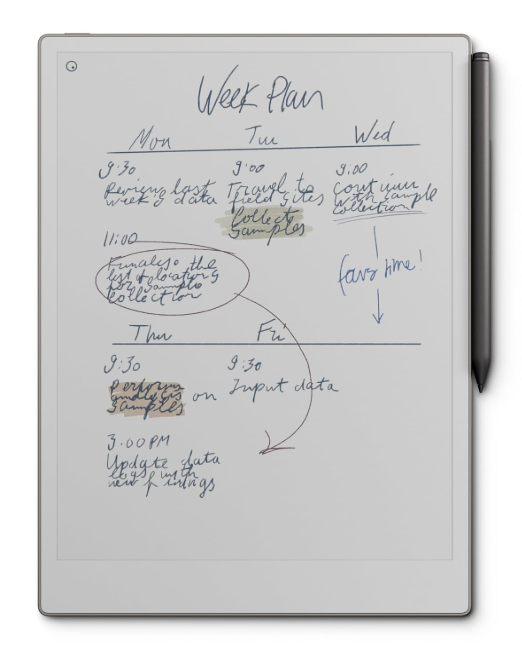 Week Plan
Mon Tue Wed
9:30
Review last
week's data
9:00
Travel to
field sites
Collect
samples
9:00
Continue
with sample
collection
11:00
Finalise the
list of locations
for sample
collection
Thu Fri
9:30
perform
analysis on
samples
9:30
Input data
3:00PM
Update data
logs with
new findings